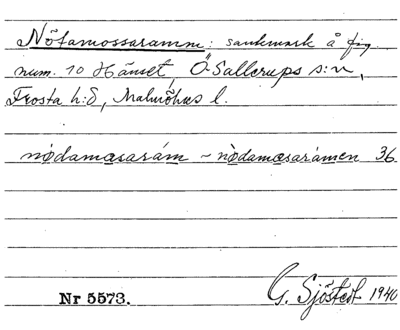 Nötamossaramm: sankmark å fig.
num. 10 Hänset, Ö. Sallerups s:n,
Frosta h:d, Malmöhus l.
nǫ̀damǝsarám ~ nǫ̀damǝsarámen 36
Nr 5573.
G. Sjöstedt 1940